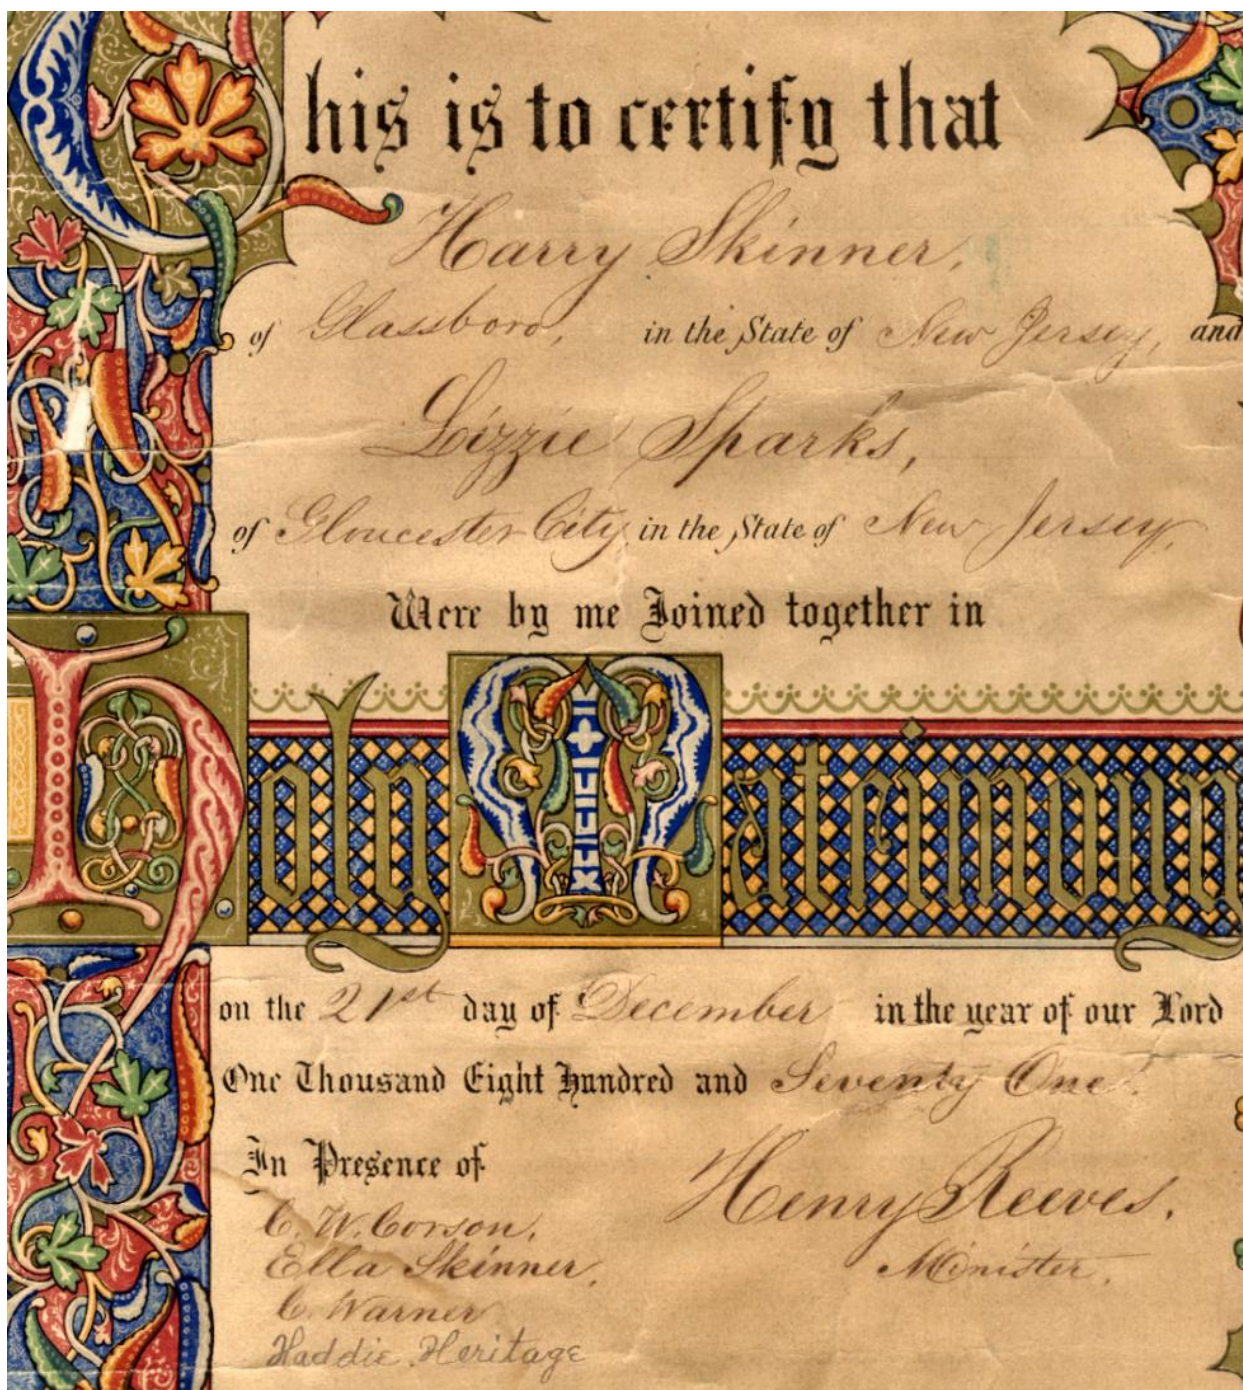 This is to certify that
Harry Skinner,
of Glassboro, in the State of New Jersey, and
Lizzie Sparks,
of Gloucester City, in the State of New Jersey,
Were by me Joined together in
Holy Matrimony
on the 21st day of December in the year of our Lord
One Thousand Eight Hundred and Seventy One.
In Presence of
C. W. Corson,
Henry Reeves,
Ella Skinner,
Minister,
C. Warner
Haddie Heritage